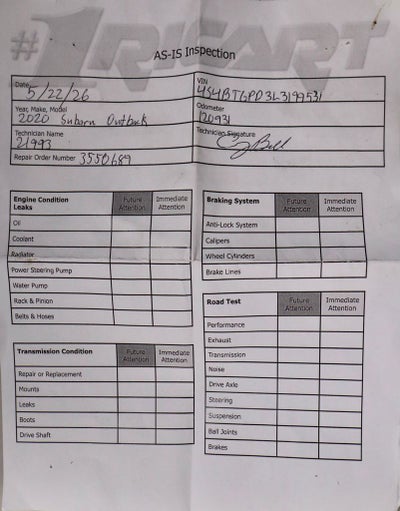 #1 RICART
AS-IS Inspection
Date 5/22/26
VIN 4S4BTGPD3L3199531
Year, Make, Model 2020 Subaru Outback
Odometer 120931
Technician Name 21993
Technician Signature
Repair Order Number 3550689
Engine Condition Leaks Future Attention Immediate Attention
Oil
Coolant
Radiator
Power Steering Pump
Water Pump
Rack & Pinion
Belts & Hoses
Transmission Condition Future Attention Immediate Attention
Repair or Replacement
Mounts
Leaks
Boots
Drive Shaft
Braking System Future Attention Immediate Attention
Anti-Lock System
Calipers
Wheel Cylinders
Brake Lines
Road Test Future Attention Immediate Attention
Performance
Exhaust
Transmission
Noise
Drive Axle
Steering
Suspension
Ball Joints
Brakes